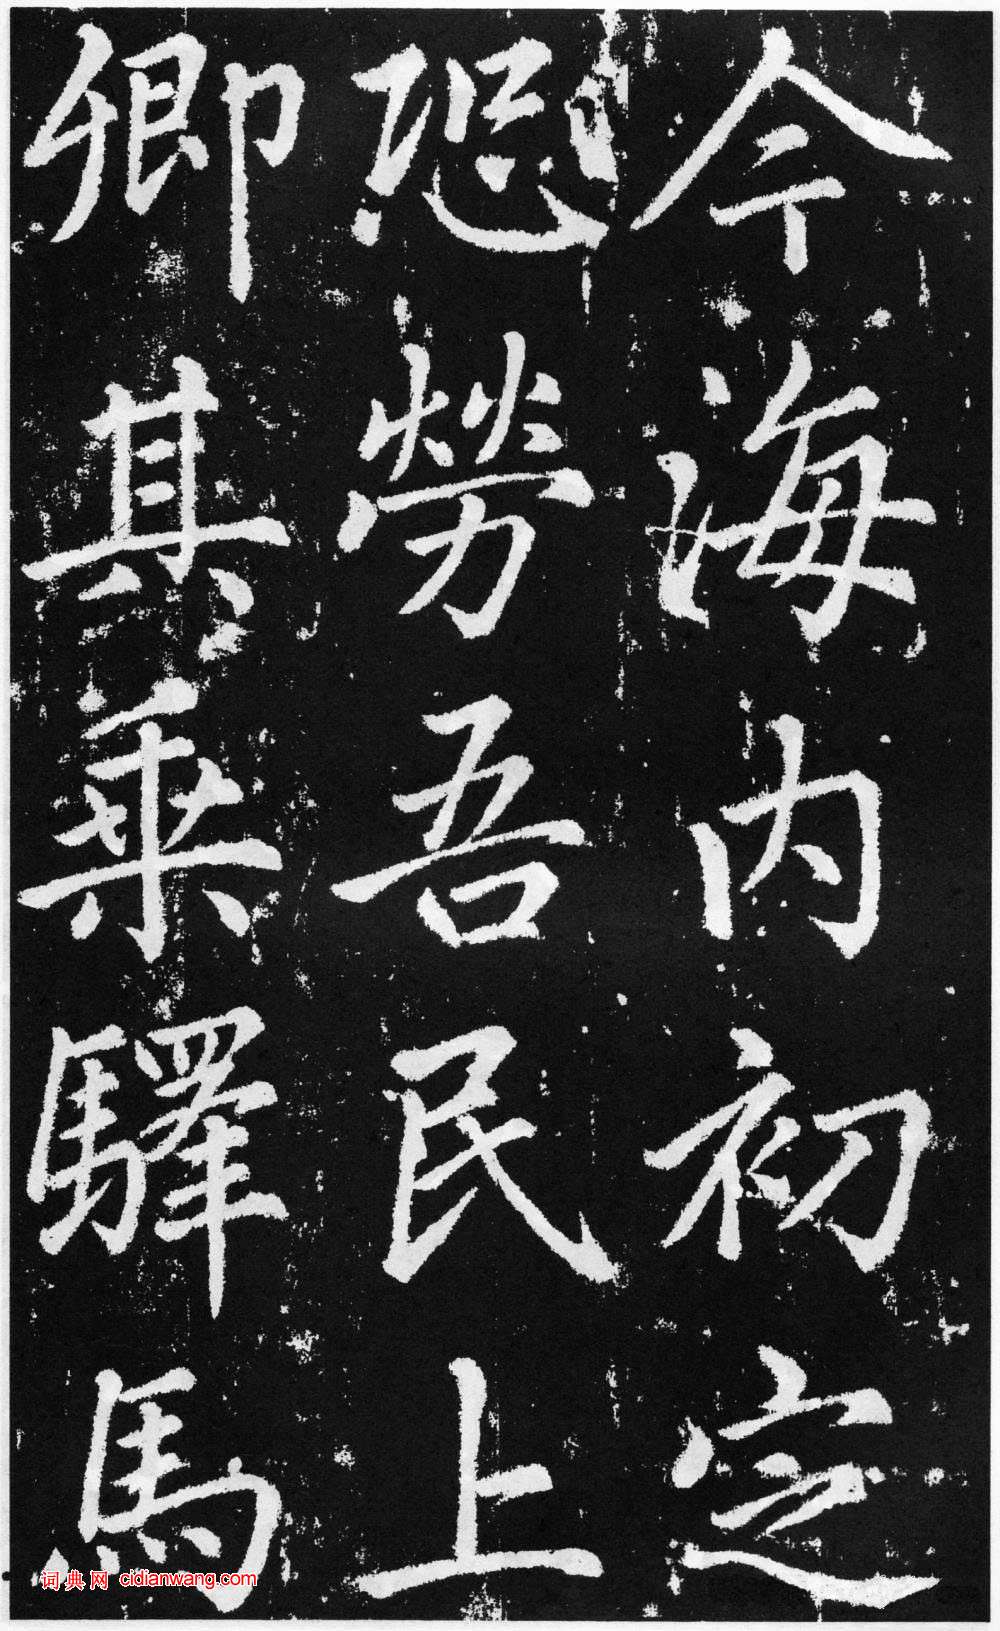 今海内初定
恐勞吾民上
卿其乗驛馬
词典网 cidianwang.com